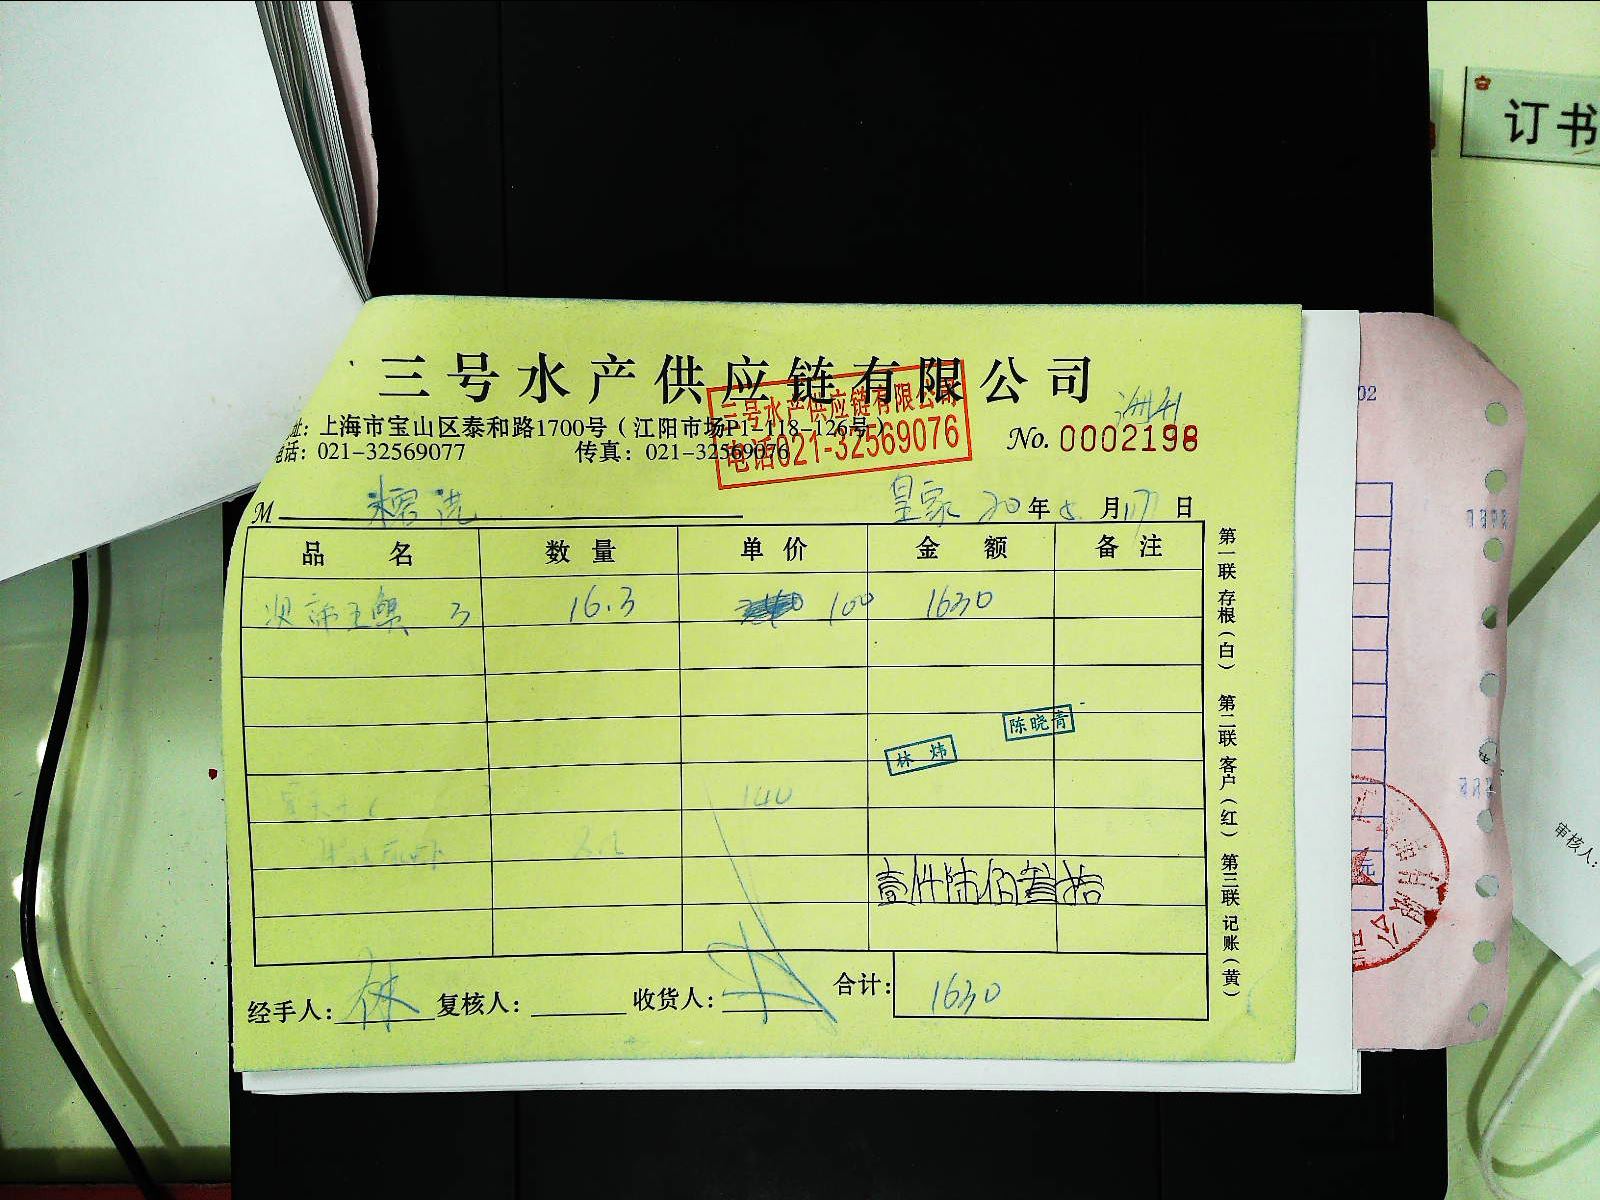 订书
三号水产供应链有限公司
址：上海市宝山区泰和路1700号（江阳市场P1-118-126号）
电话：021-32569077 传真：021-32569076
三号水产供应链有限公司
电话021-32569076
No. 0002198
02
M
皇家 20年5月17日
品名 数量 单价 金额 备注
帝王蟹 3 16.3 100 1630
陈晓青
林炜
140
壹仟陆佰叁拾
经手人：林 复核人： 收货人： 合计：1630
第一联 存根（白） 第二联 客户（红） 第三联 记账（黄）
审核人：